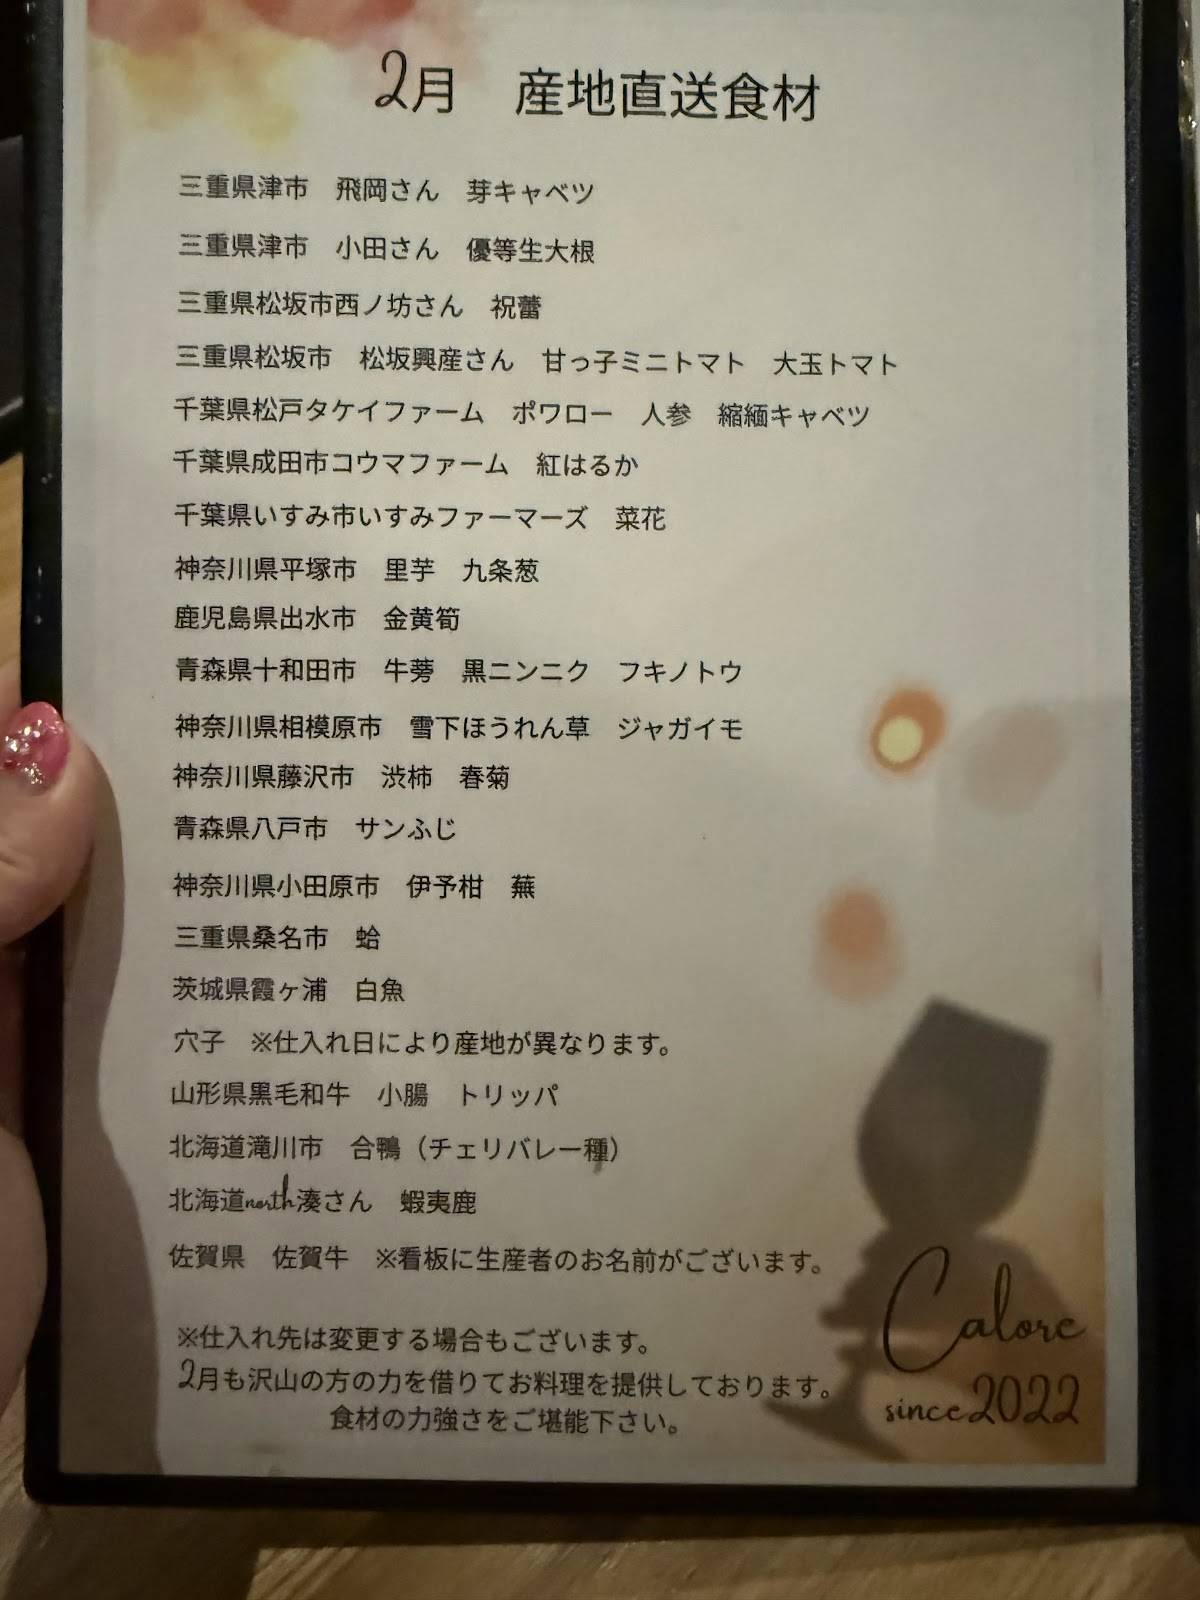 2月　産地直送食材
三重県津市　飛岡さん　芽キャベツ
三重県津市　小田さん　優等生大根
三重県松坂市西ノ坊さん　祝蕾
三重県松坂市　松坂興産さん　甘っ子ミニトマト　大玉トマト
千葉県松戸タケイファーム　ポワロー　人参　縮緬キャベツ
千葉県成田市コウマファーム　紅はるか
千葉県いすみ市いすみファーマーズ　菜花
神奈川県平塚市　里芋　九条葱
鹿児島県出水市　金黄筍
青森県十和田市　牛蒡　黒ニンニク　フキノトウ
神奈川県相模原市　雪下ほうれん草　ジャガイモ
神奈川県藤沢市　渋柿　春菊
青森県八戸市　サンふじ
神奈川県小田原市　伊予柑　蕪
三重県桑名市　蛤
茨城県霞ヶ浦　白魚
穴子　※仕入れ日により産地が異なります。
山形県黒毛和牛　小腸　トリッパ
北海道滝川市　合鴨（チェリバレー種）
北海道north湊さん　蝦夷鹿
佐賀県　佐賀牛　※看板に生産者のお名前がございます。
※仕入れ先は変更する場合もございます。
2月も沢山の方の力を借りてお料理を提供しております。
食材の力強さをご堪能下さい。
Calore
since2022